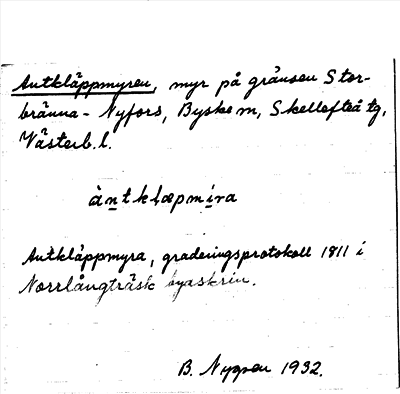 Antkläppmyren, myr på gränsen Stor-
bränna - Nyfors, Byske m, Skellefteå tg,
Västerb. l.
àntklæpmíra
Antkläppmyra, graderingsprotokoll 1811 i
Norrlångträsk byaskrin.
B. Nygren 1932.